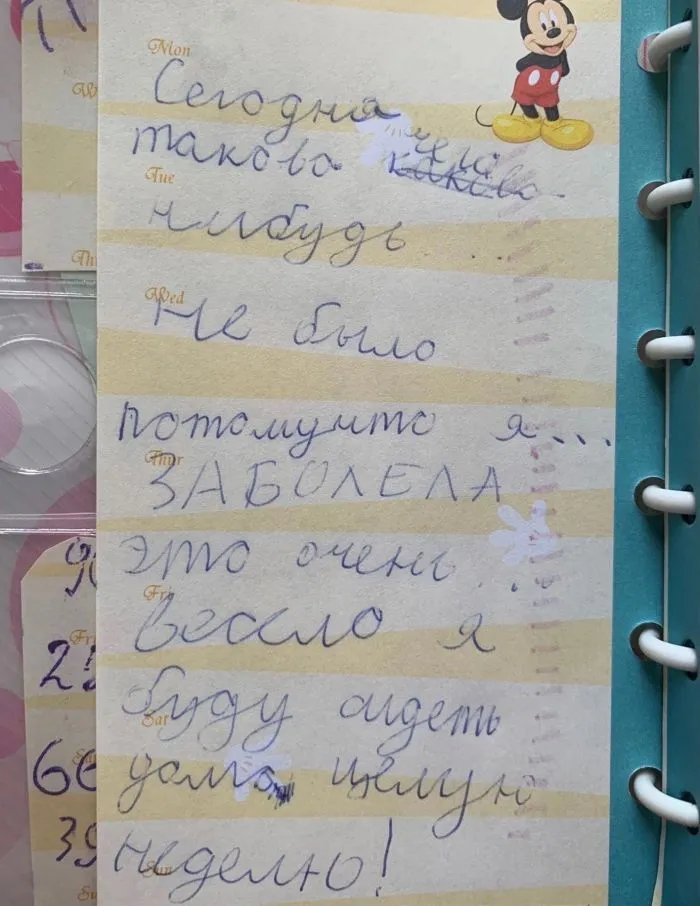 Mon
Сегодня
таково чего
каково
Tue
нибудь ...
Wed
не было
потомучто я...
Thur
ЗАБОЛЕЛА
это очень ...
Fri
весело я
буду сидеть
Sat
дома целую
неделю!
Sun